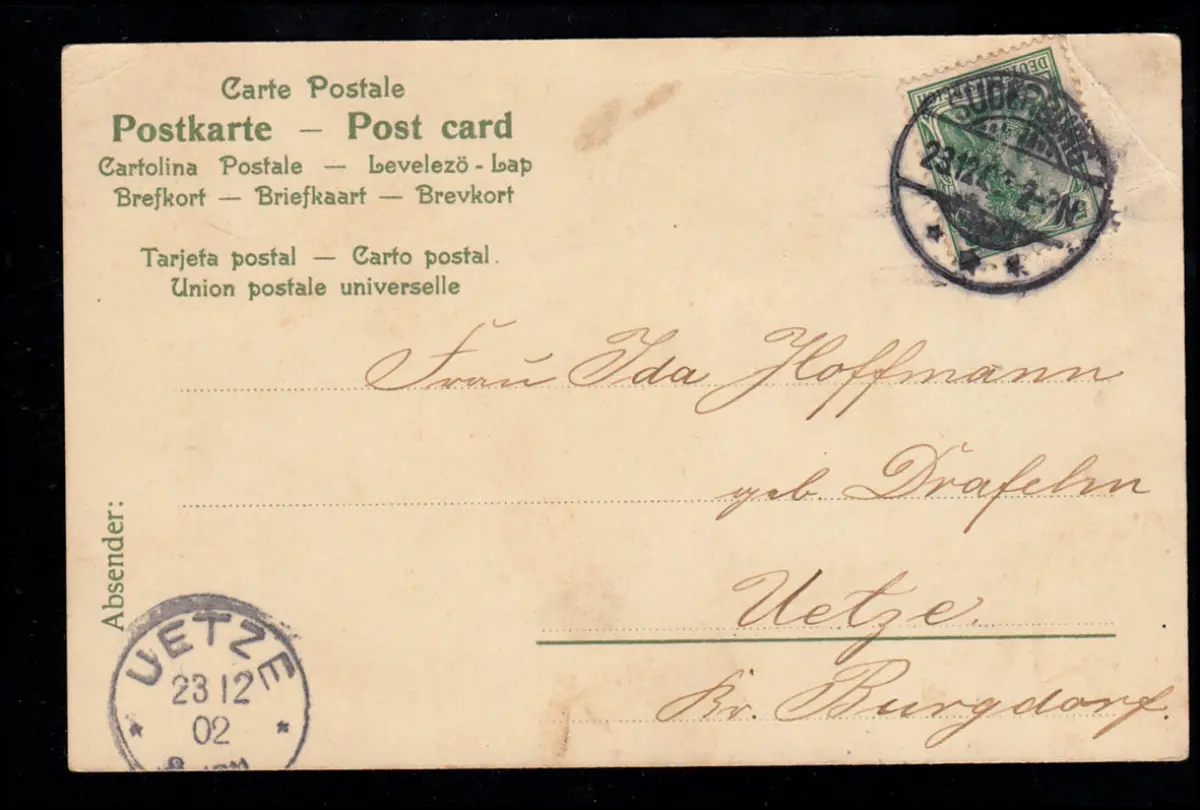 Carte Postale
Postkarte — Post card
Cartolina Postale — Levelezö-Lap
Brefkort — Briefkaart — Brevkort
Tarjeta postal — Carto postal.
Union postale universelle
23.12.
2-3N
5
Frau Ida Hoffmann
geb Drafehn
Uetze.
Kr. Burgdorf.
Absender:
UETZE
23 12
02